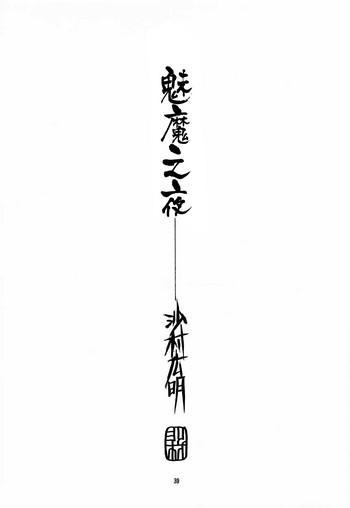 魅魔之夜
沙村広明
39